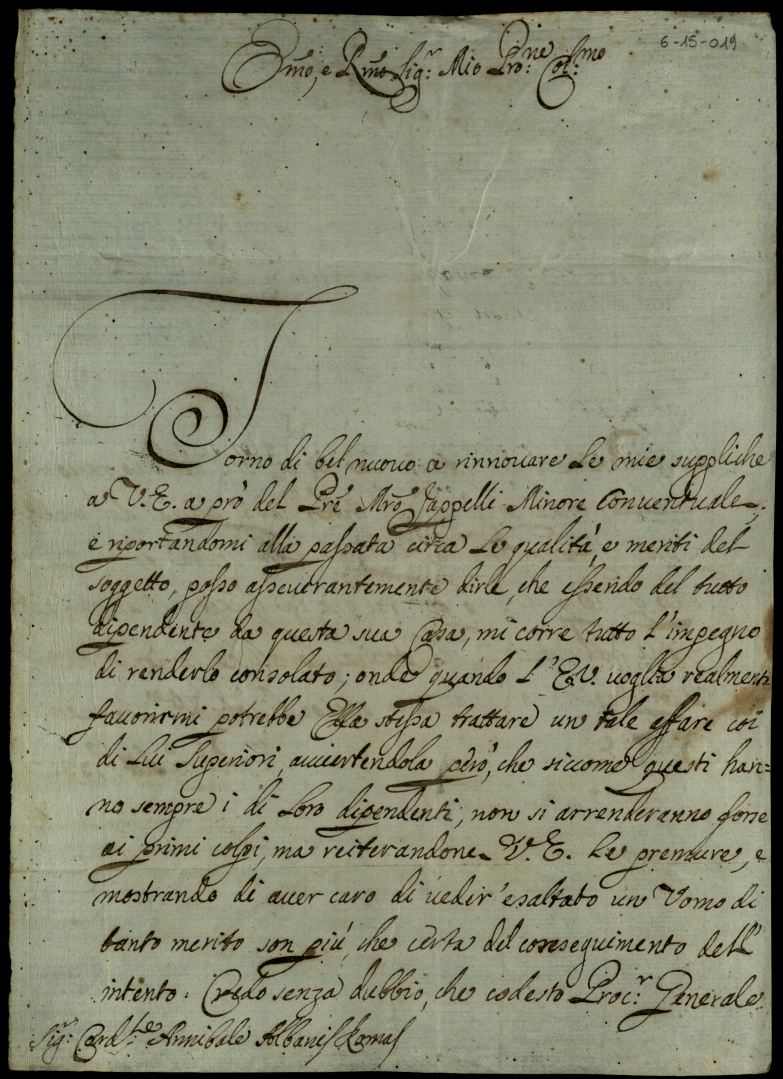 6-15-019
Emo, e Rmo Sig.r Mio Pro:ne Col:mo
Torno di bel nuouo a rinnouare le mie suppliche
a V.E. a prò del Pre Mro Jappelli Minore Conuentuale,
e riportandomi alla passata circa le qualità, e meriti del
soggetto, posso asseuerantemente dirle, che essendo del tutto
dipendente da questa sua Casa, mi corre tutto l'impegno
di renderlo consolato; onde quando l'E.V. uoglia realmente
fauorirmi potrebbe Essa stessa trattare un tale affare coi
di Lui Superiori, auuertendola però, che siccome questi han=
no sempre i di loro dipendenti, non si arrenderanno forse
ai primi colpi, ma reiterandone V.E. le premure, e
mostrando di auer caro di ueder' esaltato un Uomo di
tanto merito son più, che certa del conseguimento dell'
intento. Credo senza dubbio, che codesto Proc:r Generale
Sig:r Card:le Annibale Albani Roma